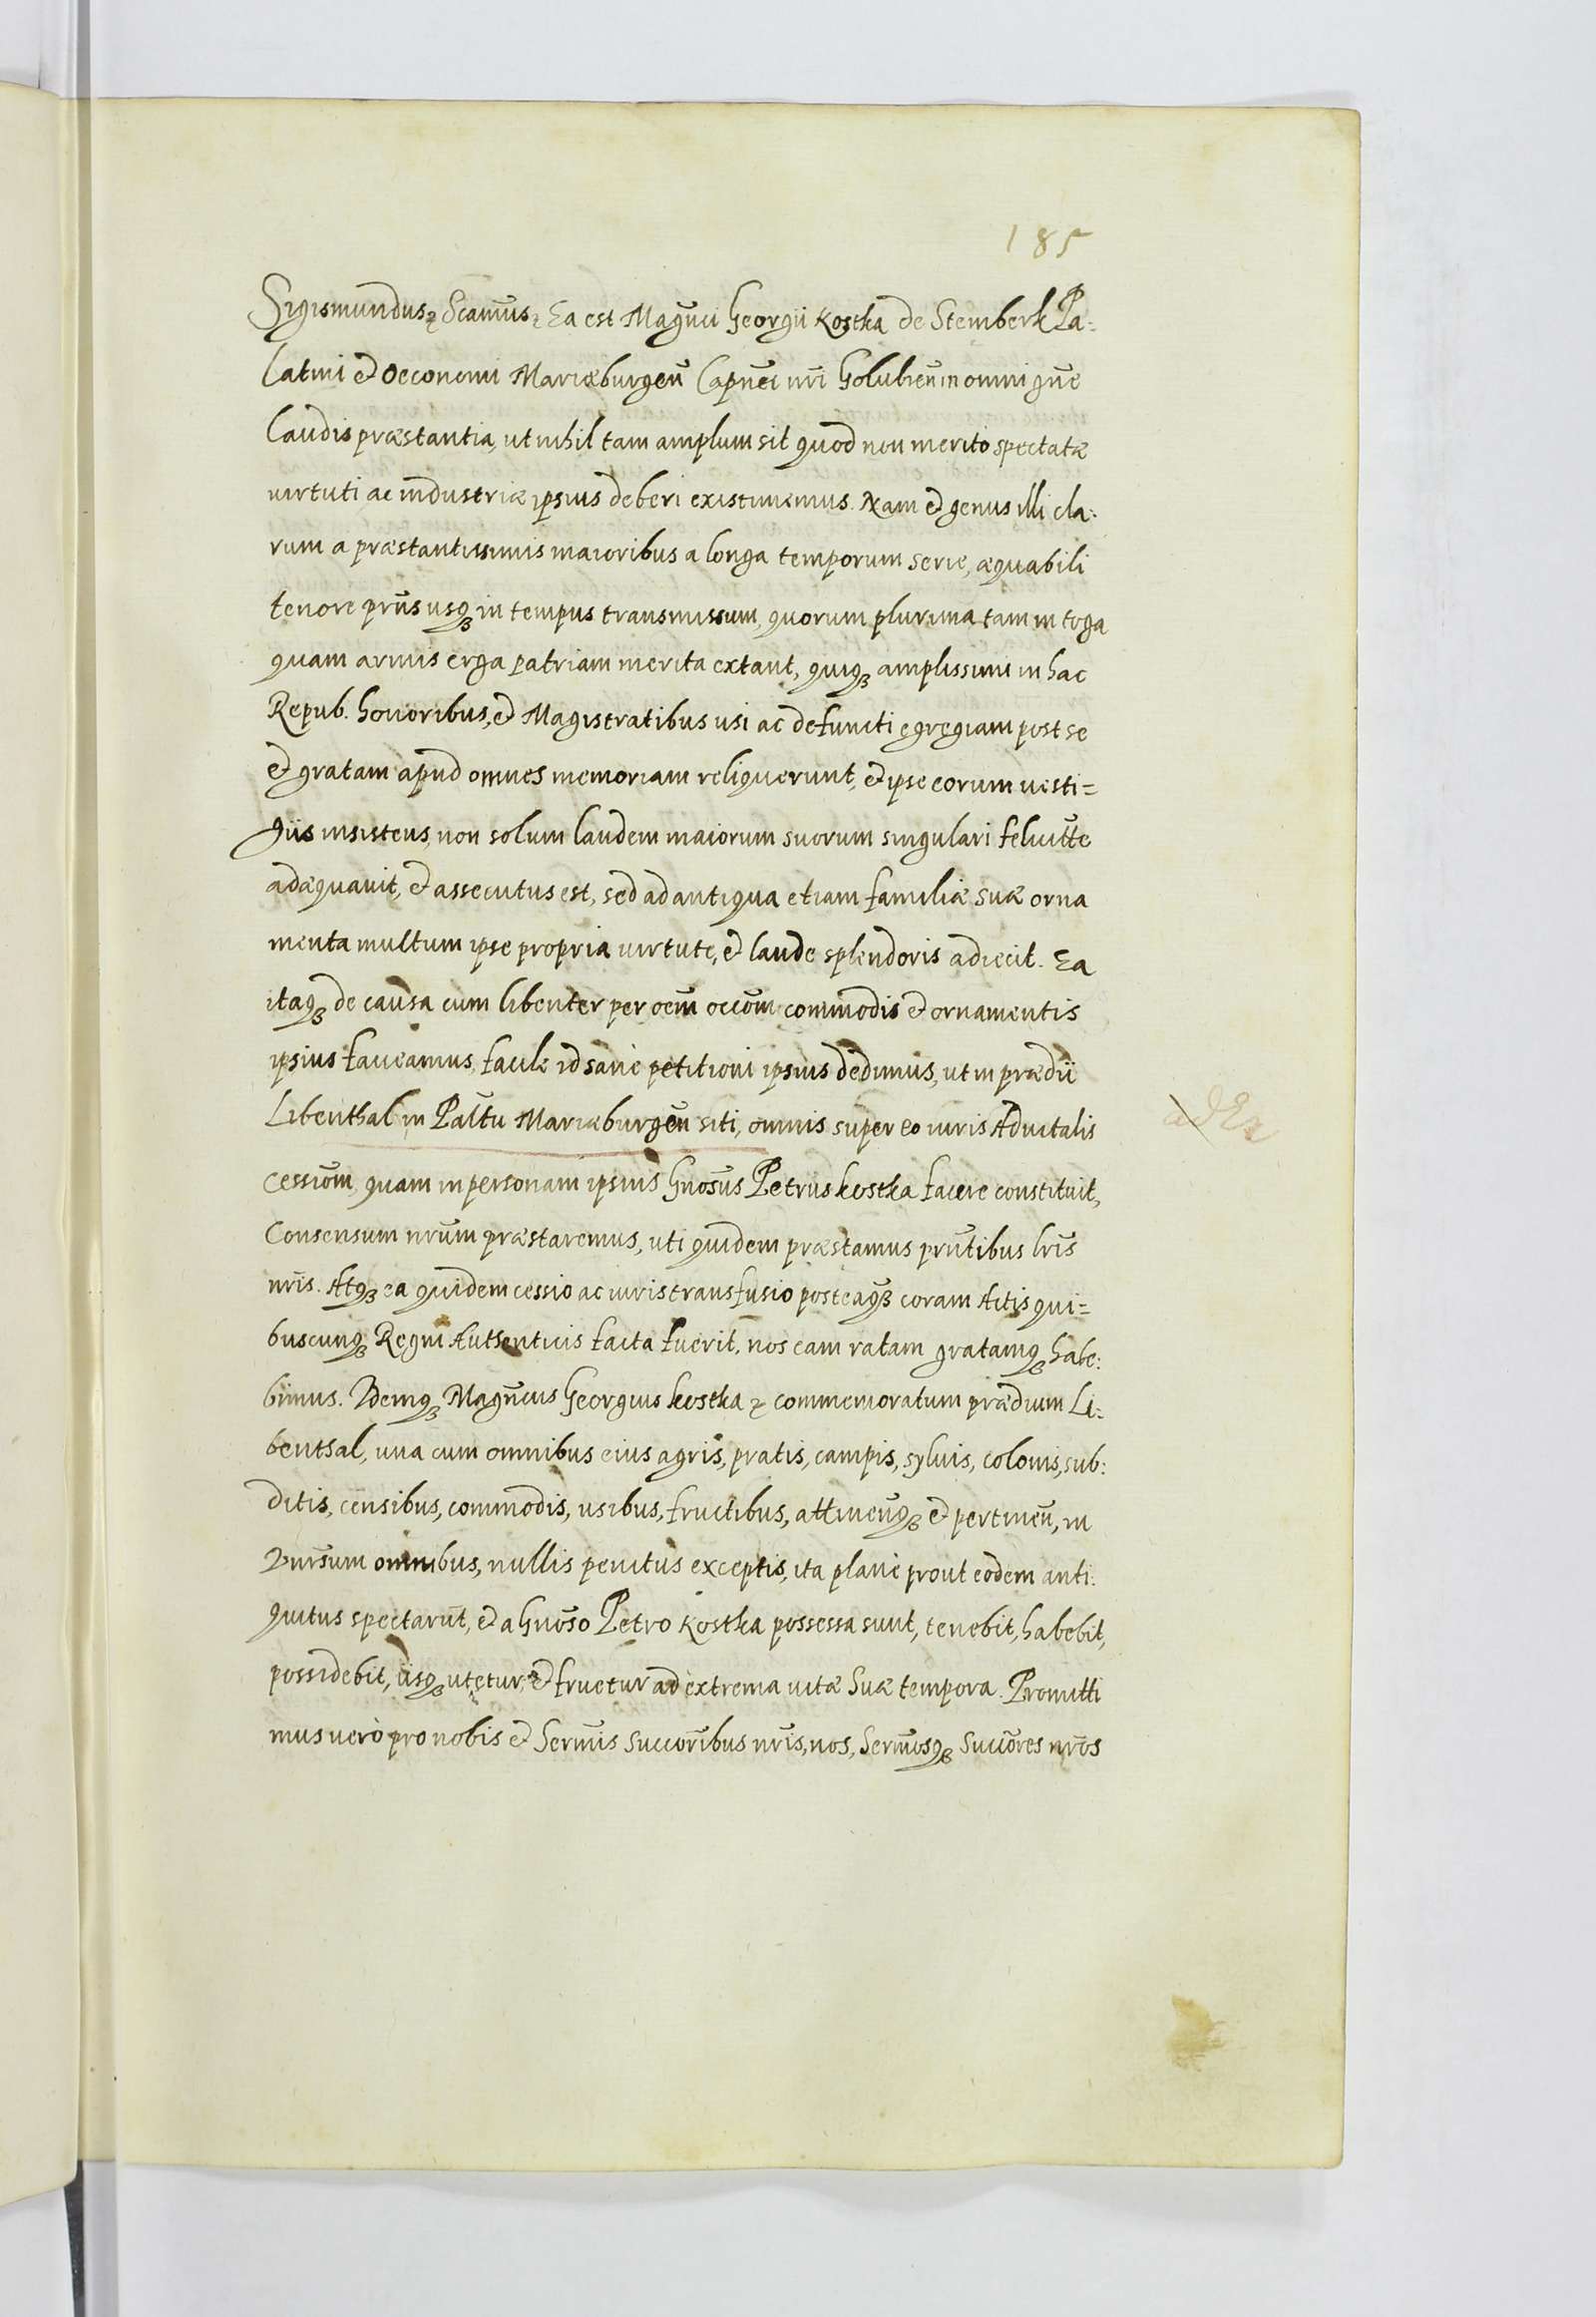 185
Sigismundus ꝛ Scam̃us ꝛ Ea est Magñci Georgii Kostka de Stemberk Pa:
latini et Oeconomi Mariæburgeñ Capñei nr̃i Golubieñ in omni gñe
laudis præstantia, ut nihil tam amplum sit quod non merito spectatæ
virtuti ac industriæ ipsius deberi existimemus. Nam et genus illi cla:
rum a præstantissimis maioribus a longa temporum serie, æquabili
tenore prũs usqꝫ in tempus transmissum, quorum plurima tam in toga
quam armis erga patriam merita extant, quiqꝫ amplissimi in hac
Repub. honoribus, et Magistratibus usi ac defuncti egregiam post se
et gratam apud omnes memoriam reliquerunt, et ipse eorum vesti=
giis insistens, non solum laudem maiorum suorum singulari felicitt̃e
adæquavit, et assecutus est, sed ad antiqua etiam familiæ suæ orna
menta multum ipse propria virtute, et laude splendoris adiecit. Ea
itaqꝫ de causa cum libenter per oẽm occõm commodis et ornamentis
ipsius faveamus, facile id sane petitioni ipsius dedimus, ut in prædii
Libenthal in Palt̃u Mariæburgeñ siti, omnis super eo iuris Advitalis
cessiõm, quam in personam ipsius Gnõsus Petrus Kostka facere constituit,
Consensum nrũm præstaremus, uti quidem præstamus prñtibus lrĩs
nrĩs. Atqꝫ ea quidem cessio ac iuris transfusio posteaqꝫ coram Actis qui=
buscunqꝫ Regni Authenticis facta fuerit, nos eam ratam gratamqꝫ habe:
bimus. Idemqꝫ Magñcus Georgius Kostka ꝛ commemoratum prædium Li:
benthal, una cum omnibus eius agris, pratis, campis, sylvis, colonis, sub:
ditis, censibus, commodis, usibus, fructibus, attineñqꝫ et pertineñ, in
Vnĩsum omnibus, nullis penitus exceptis, ita plane prout eodem anti:
quitus spectarũt, et a Gnõso Petro Kostka possessa sunt, tenebit, habebit,
possidebit, iisqꝫ utetur, et fruetur ad extrema vitæ suæ tempora. Promitti
mus vero pro nobis et Serm̃is Succorĩbus nrĩs, nos, Serm̃osqꝫ Succõres nrõs